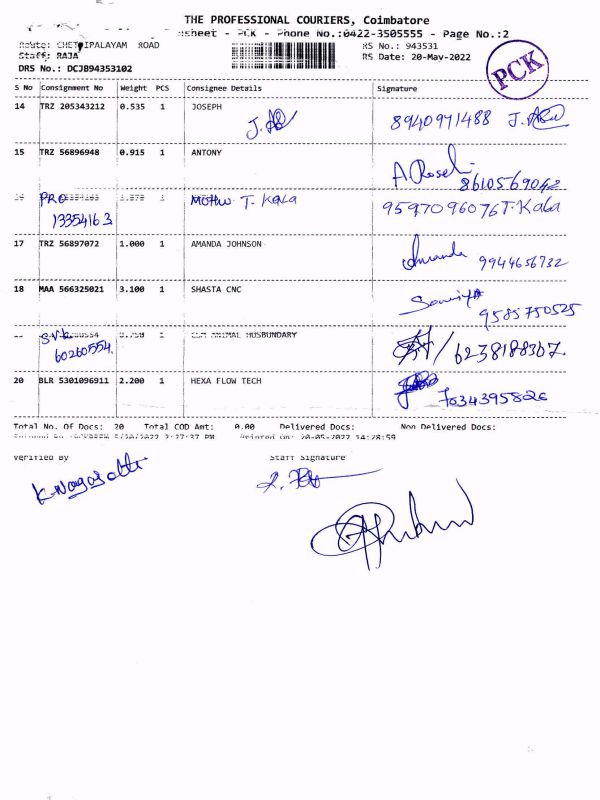 THE PROFESSIONAL COURIERS, Coimbatore
sheet - PCK - Phone No.:0422-3505555 - Page No.:2
Route: CHETTIPALAYAM ROAD
RS No.: 943531
Staff: RAJA
RS Date: 20-May-2022
DRS No.: DCJB94353102
PCK
S No Consignment No Weight PCS Consignee Details Signature
14 TRZ 205343212 0.535 1 JOSEPH 8940971488
15 TRZ 56896948 0.915 1 ANTONY
A. Rosel 8610569042
PRO 1 T. Kala 9597096076 T. Kala
13354163
17 TRZ 56897072 1.000 1 AMANDA JOHNSON
Amanda 9944656732
18 MAA 566325021 3.100 1 SHASTA CNC
9585750525
1 ANIMAL HUSBUNDARY
60260554 / 6238188367
20 BLR 5301096911 2.200 1 HEXA FLOW TECH
7034395826
Total No. Of Docs: 20 Total COD Amt: 0.00 Delivered Docs: Non Delivered Docs:
5/20/2022 2:27:37 PM Printed On: 20-05-2022 14:28:59
Verified By Staff Signature